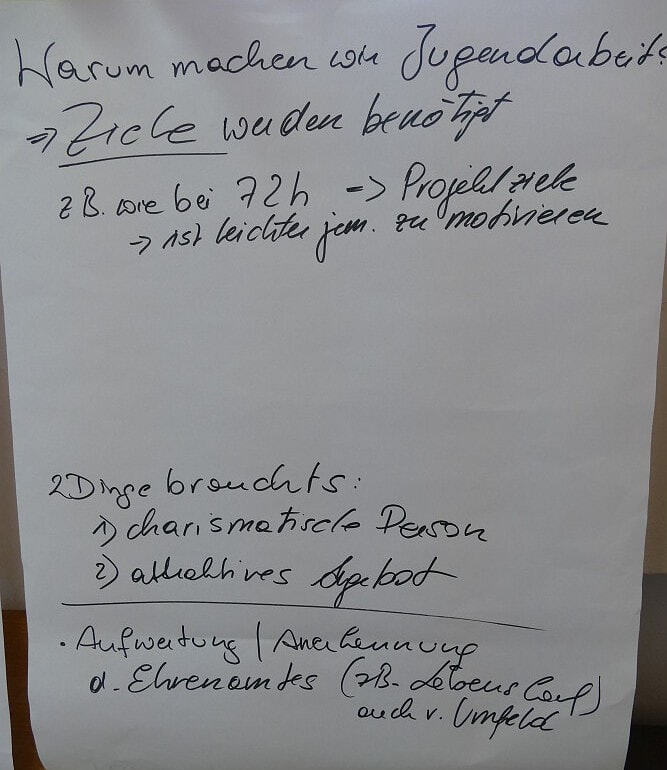 Warum machen wir Jugendarbeit?
⇒ Ziele werden benötigt
z.B. wie bei 72h => Projektziele
→ ist leichter jem. zu motivieren
2 Dinge brauchts:
1) charismatische Person
2) attraktives Angebot
• Aufwertung / Anerkennung
d. Ehrenamtes (zB. Lebenslauf)
auch v. Umfeld